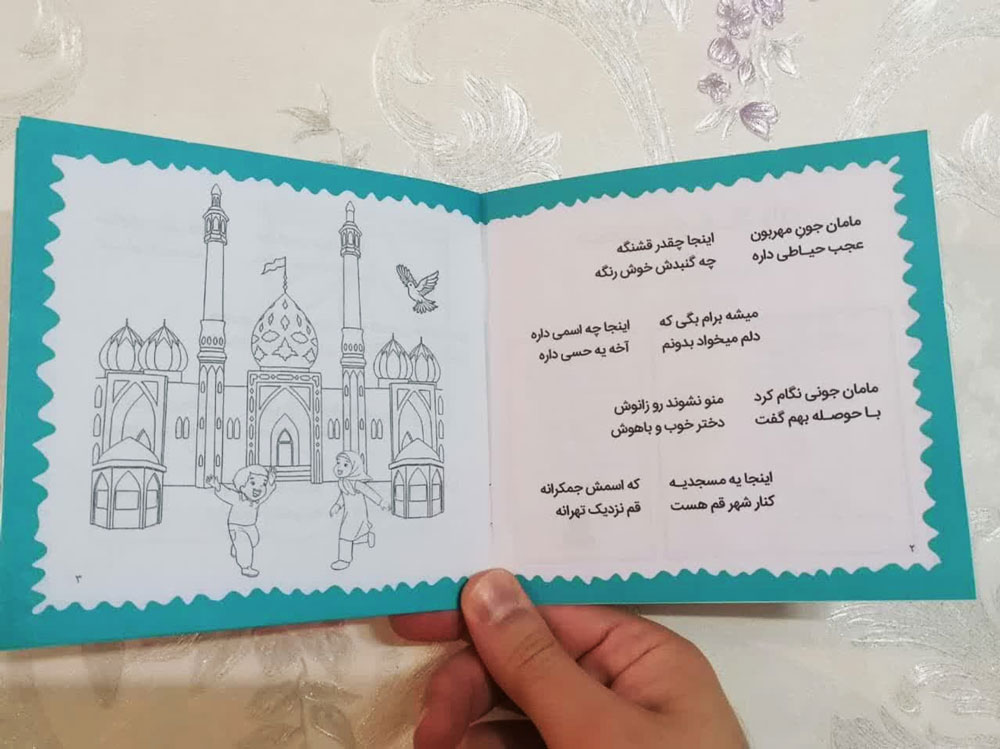 مامان جون مهربون اینجا چقدر قشنگه
عجب حیـاطی داره چه گنبدش خوش رنگه
میشه برام بگی که اینجا چه اسمی داره
دلم میخواد بدونم آخه یه حسی داره
مامان جونی نگام کرد منو نشوند رو زانوش
بـا حوصـله بهم گفت دختر خوب و باهوش
اینجا یه مسجدیـه که اسمش جمکرانه
کنار شهر قم هست قم نزدیک تهرانه
۲
۳